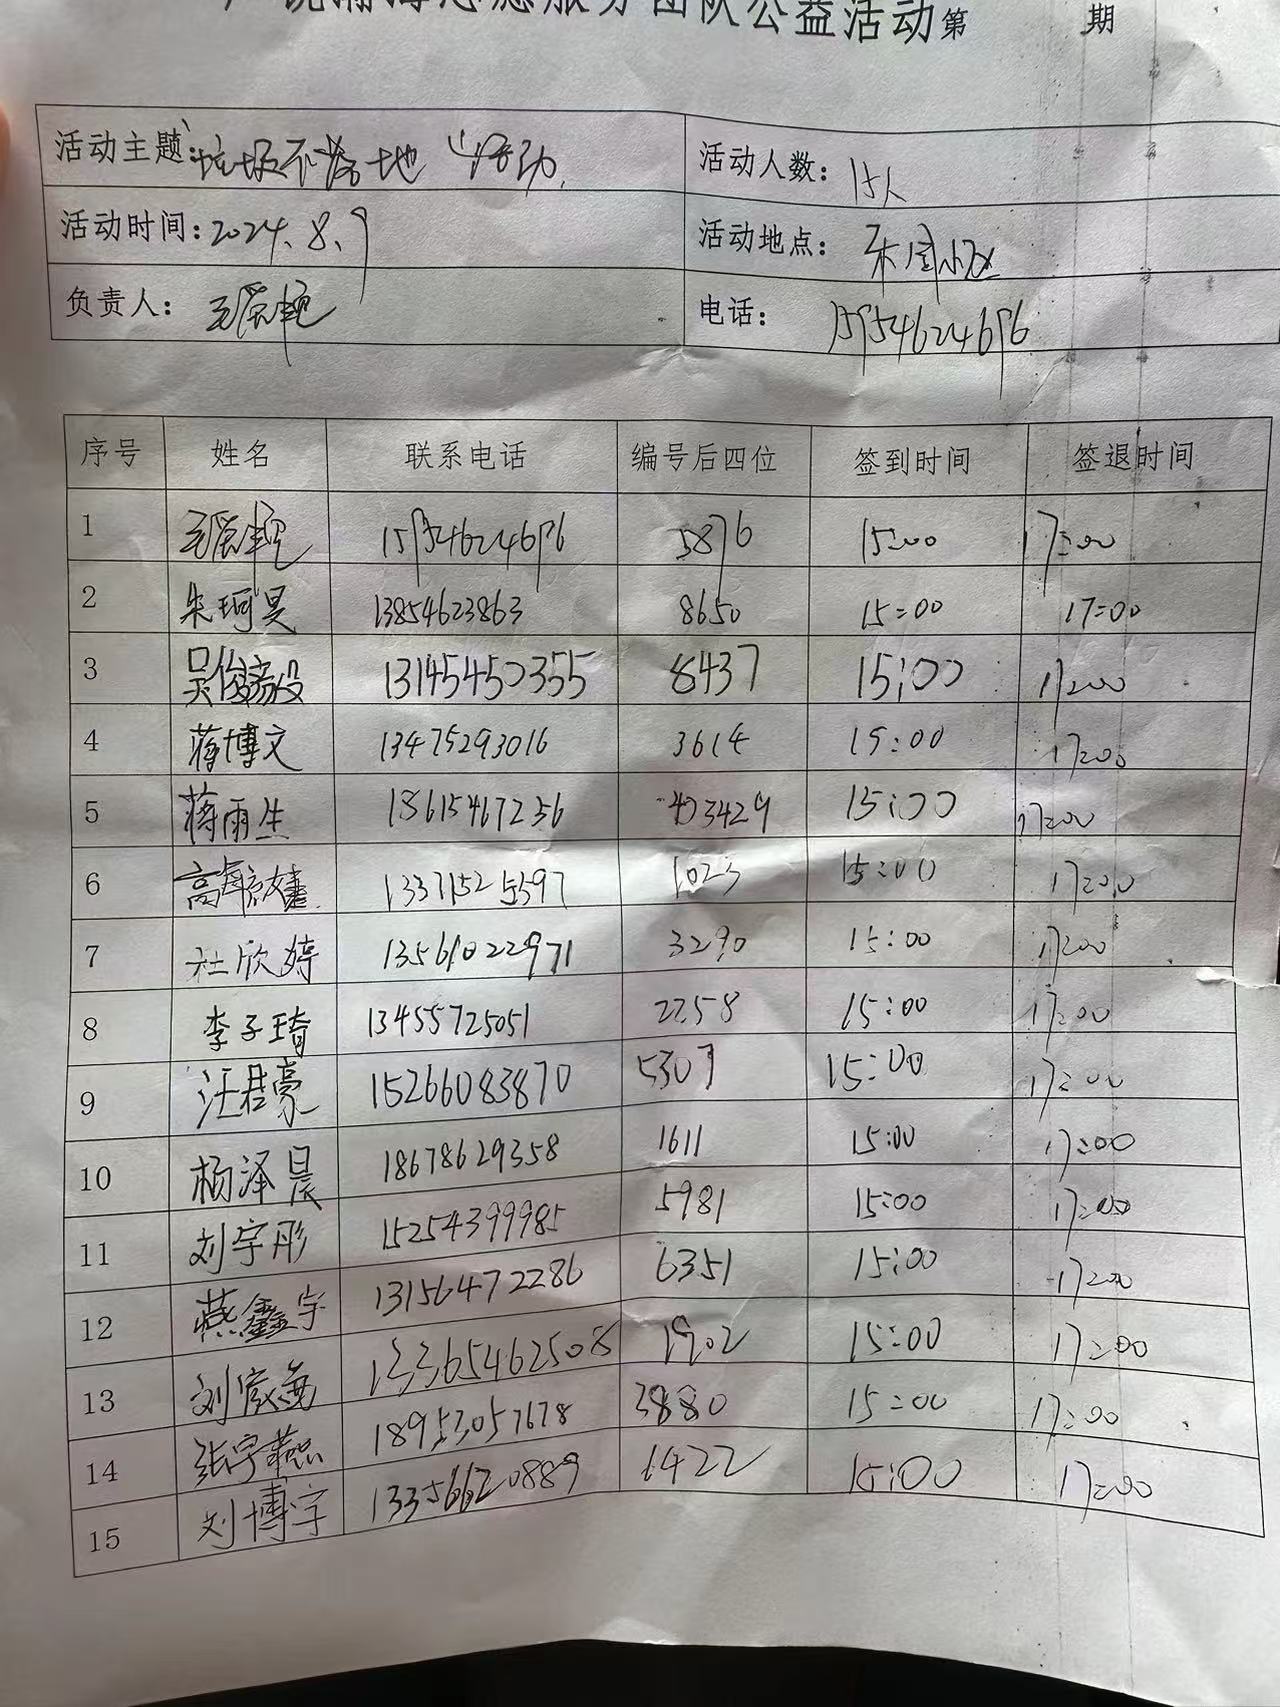 志愿服务团队公益活动第 期
活动主题:垃圾不落地 活动 活动人数: 15人
活动时间:2024.8.9 活动地点: 小区
负责人: 电话: 15954624696
序号 姓名 联系电话 编号后四位 签到时间 签退时间
1 15954624696 5876 15:00 17:00
2 朱珂昊 13854623863 8650 15:00 17:00
3 吴俊 13145450355 8437 15:00 17:00
4 蒋博文 13475293016 3614 15:00 17:00
5 蒋雨生 18615467256 403429 15:00 17:00
6 高 13371525597 1023 15:00 17:00
7 杜欣婷 13561022971 3290 15:00 17:00
8 李子琦 13455725051 2258 15:00 17:00
9 汪君豪 15266083870 5307 15:00 17:00
10 杨泽晨 18678629358 1611 15:00 17:00
11 刘宇彤 15254399985 5981 15:00 17:00
12 燕鑫宇 13156472286 6351 15:00 17:00
13 刘 13365462508 1902 15:00 17:00
14 张宇 18953057678 3880 15:00 17:00
15 刘博宇 13356620889 6422 15:00 17:00